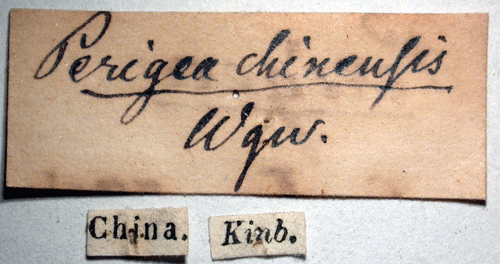 Perigea chinensis
Wgrn.
China. Kinb.